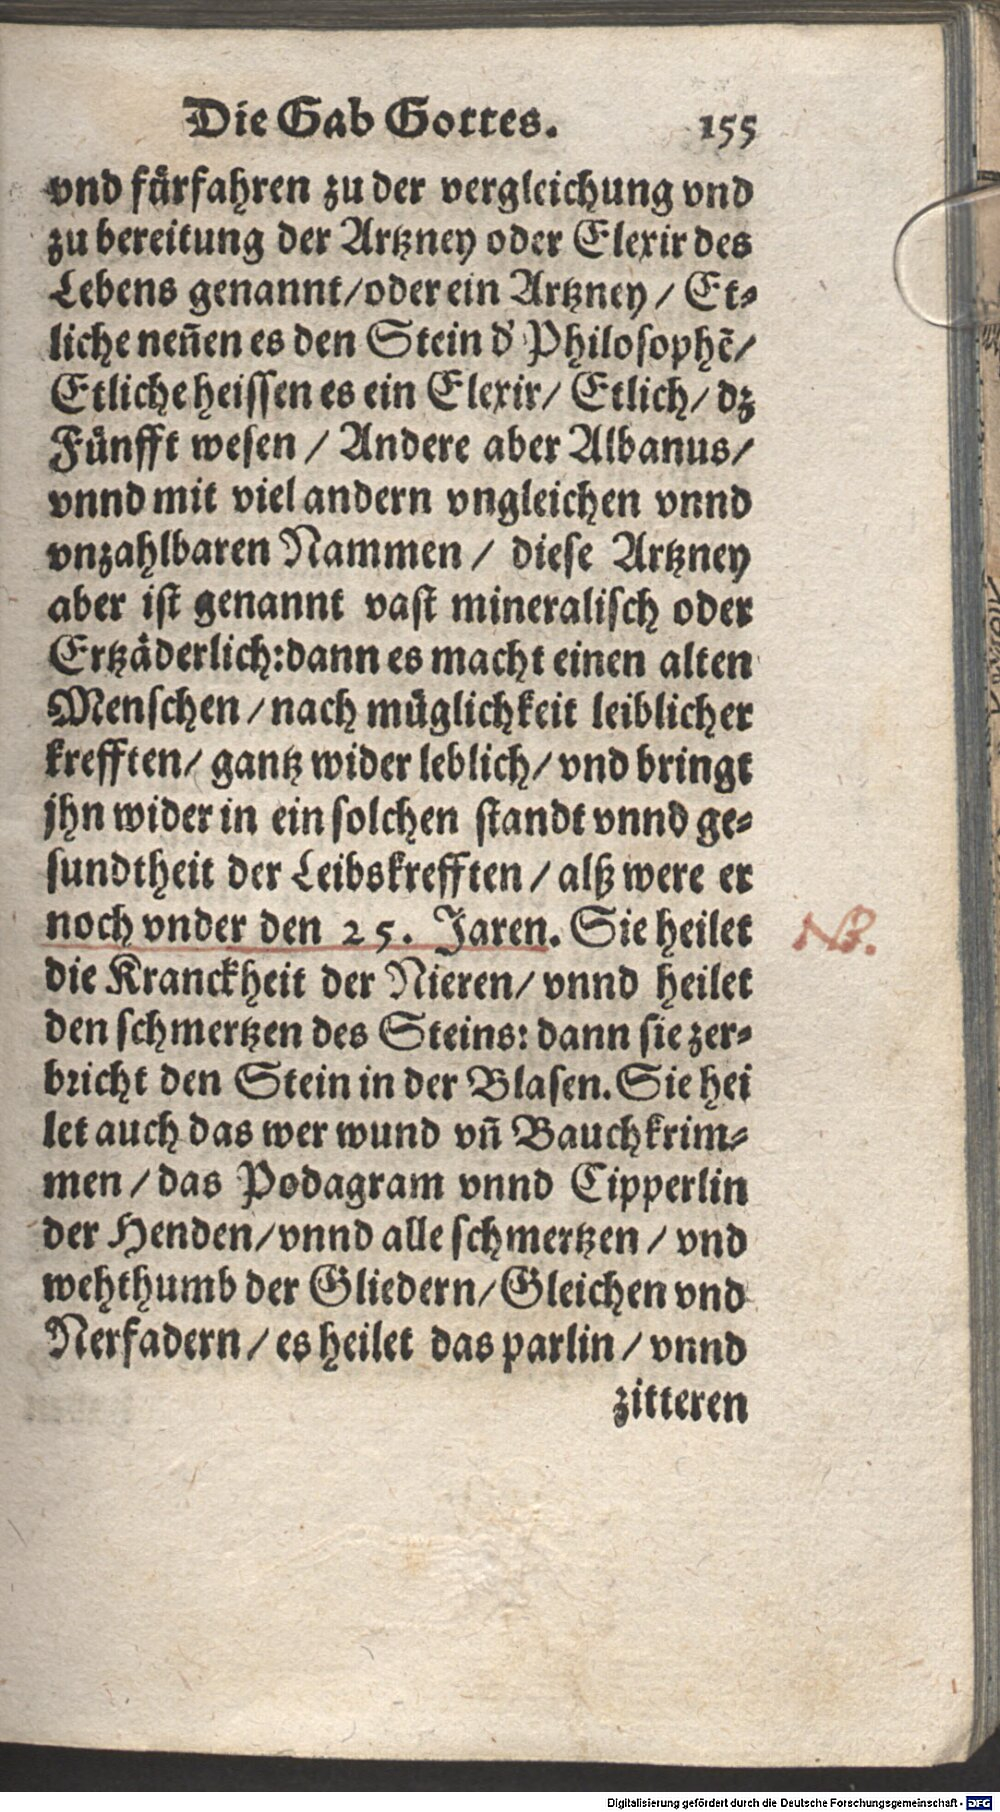 Die Gab Gottes. 155
vnd fürfahren zu der vergleichung vnd
zu bereitung der Artzney oder Elexir des
Lebens genannt/oder ein Artzney / Et⸗
liche neñen es den Stein d' Philosophẽ/
Etliche heissen es ein Elexir/ Etlich/ dz
Fünfft wesen / Andere aber Albanus/
vnnd mit viel andern vngleichen vnnd
vnzahlbaren Nammen / diese Artzney
aber ist genannt vast mineralisch oder
Ertzäderlich:dann es macht einen alten
Menschen / nach müglichkeit leiblicher
krefften/ gantz wider leblich/ vnd bringt
jhn wider in ein solchen standt vnnd ge⸗
sundtheit der Leibskrefften / alß were er
noch vnder den 25. Jaren. Sie heilet
NB.
die Kranckheit der Nieren/ vnnd heilet
den schmertzen des Steins: dann sie zer⸗
bricht den Stein in der Blasen. Sie hei
let auch das wer wund vñ Bauchkrim⸗
men / das Podagram vnnd Cipperlin
der Henden/vnnd alle schmertzen / vnd
wehthumb der Gliedern/ Gleichen vnd
Nerfadern / es heilet das parlin / vnnd
zitteren
Digitalisierung gefördert durch die Deutsche Forschungsgemeinschaft - DFG